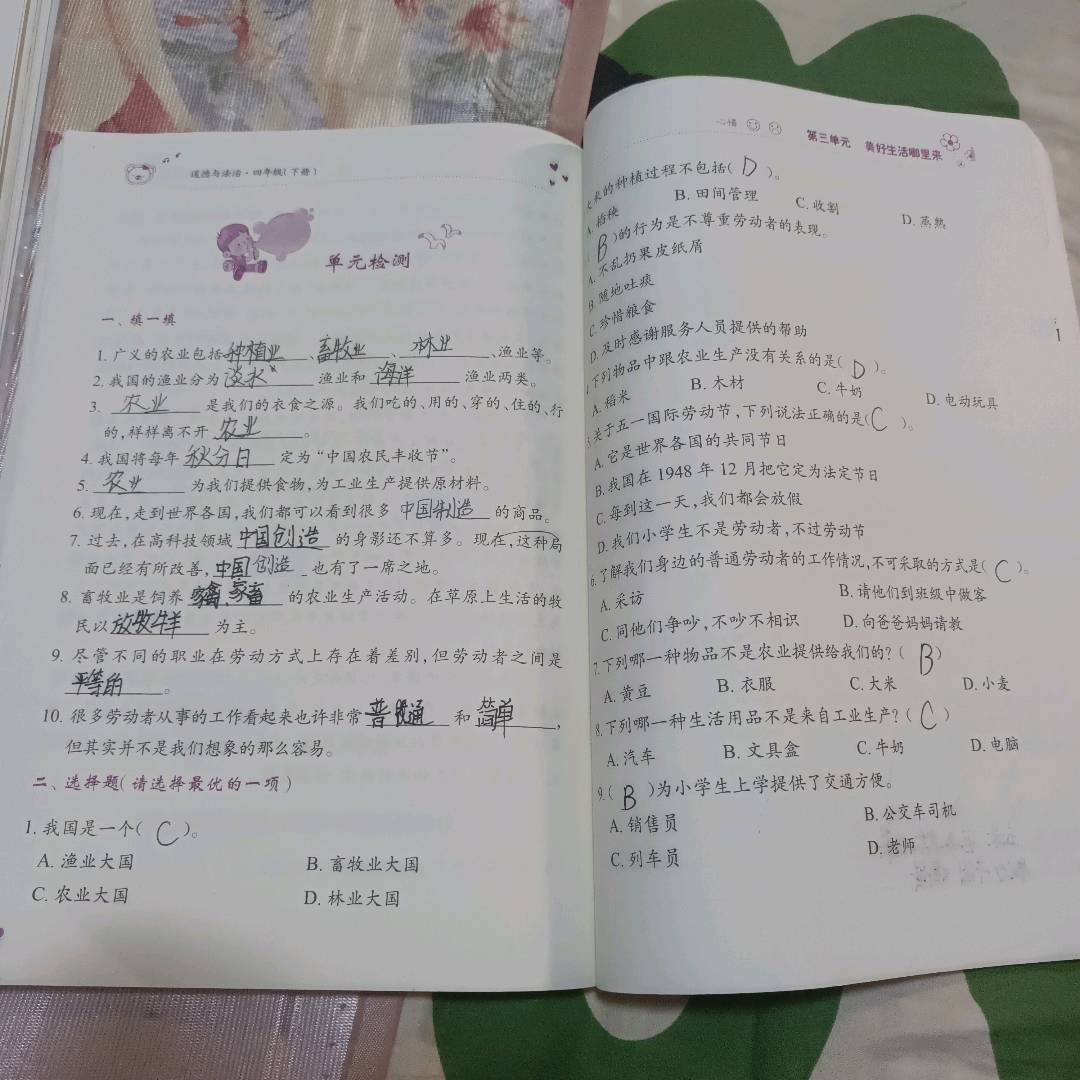 道德与法治·四年级(下册)
单元检测
一、填一填
1. 广义的农业包括种植业、畜牧业、林业、渔业等。
2. 我国的渔业分为淡水渔业和海洋渔业两类。
3. 农业是我们的衣食之源。我们吃的、用的、穿的、住的、行
的,样样离不开农业。
4. 我国将每年秋分日定为“中国农民丰收节”。
5. 农业为我们提供食物,为工业生产提供原材料。
6. 现在,走到世界各国,我们都可以看到很多中国制造的商品。
7. 过去,在高科技领域中国创造的身影还不算多。现在,这种局
面已经有所改善,中国创造也有了一席之地。
8. 畜牧业是饲养家禽、家畜的农业生产活动。在草原上生活的牧
民以放牧牛羊为主。
9. 尽管不同的职业在劳动方式上存在着差别,但劳动者之间是
平等的。
10. 很多劳动者从事的工作看起来也许非常普通和简单,
但其实并不是我们想象的那么容易。
二、选择题(请选择最优的一项)
1. 我国是一个(C)。
A. 渔业大国 B. 畜牧业大国
C. 农业大国 D. 林业大国
心情 第三单元 美好生活哪里来
米的种植过程不包括(D)。
A. 插秧 B. 田间管理 C. 收割 D. 蒸熟
(B)的行为是不尊重劳动者的表现。
A. 不乱扔果皮纸屑
B. 随地吐痰
C. 珍惜粮食
D. 及时感谢服务人员提供的帮助
下列物品中跟农业生产没有关系的是(D)。
A. 稻米 B. 木材 C. 牛奶 D. 电动玩具
关于五一国际劳动节,下列说法正确的是(C)。
A. 它是世界各国的共同节日
B. 我国在 1948 年 12 月把它定为法定节日
C. 每到这一天,我们都会放假
D. 我们小学生不是劳动者,不过劳动节
6. 了解我们身边的普通劳动者的工作情况,不可采取的方式是(C)。
A. 采访 B. 请他们到班级中做客
C. 同他们争吵,不吵不相识 D. 向爸爸妈妈请教
7. 下列哪一种物品不是农业提供给我们的?(B)
A. 黄豆 B. 衣服 C. 大米 D. 小麦
8. 下列哪一种生活用品不是来自工业生产?(C)
A. 汽车 B. 文具盒 C. 牛奶 D. 电脑
9. (B)为小学生上学提供了交通方便。
A. 销售员 B. 公交车司机
C. 列车员 D. 老师